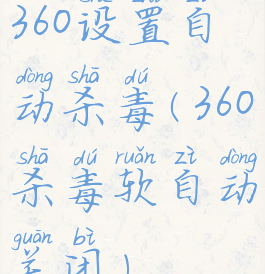 360设置自
dòng shā dú
动杀毒(360
shā dú ruǎn zì dòng
杀毒软自动
guān bì
关闭)